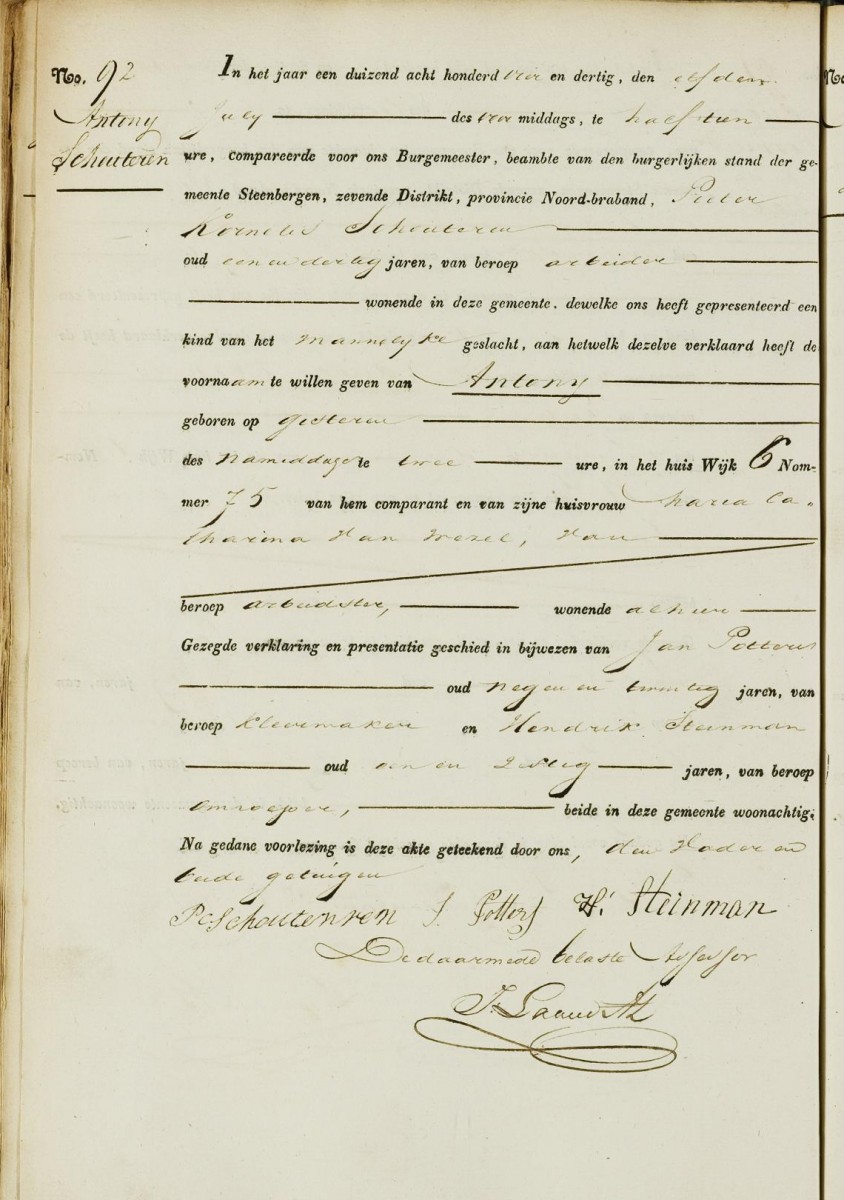 No. 92
Antony
Schouteren
In het jaar een duizend acht honderd vier en dertig, den elfden
July des voor middags, te half tien
ure, compareerde voor ons Burgemeester, beambte van den burgerlijken stand der ge-
meente Steenbergen, zevende Distrikt, provincie Noord-braband, Pieter
Kornelis Schouteren
oud een en dertig jaren, van beroep arbeider
wonende in deze gemeente. dewelke ons heeft gepresenteerd een
kind van het mannelyke geslacht, aan hetwelk dezelve verklaard heeft de
voornaam te willen geven van Antony
geboren op gisteren
des namiddags te twee ure, in het huis Wijk 6 Nom-
mer 75 van hem comparant en van zijne huisvrouw Maria Ca-
tharina Van Wezel, Van
beroep arbeidster, wonende alhier
Gezegde verklaring en presentatie geschied in bijwezen van Jan Potters
oud negen en twintig jaren, van
beroep kleermaker en Hendrik Steinman
oud een en zestig jaren, van beroep
omroeper, beide in deze gemeente woonachtig.
Na gedane voorlezing is deze akte geteekend door ons, den Vader en
beide getuigen
PC Schoutenren J. Potters H. Steinman
De daarmede belaste Assessor